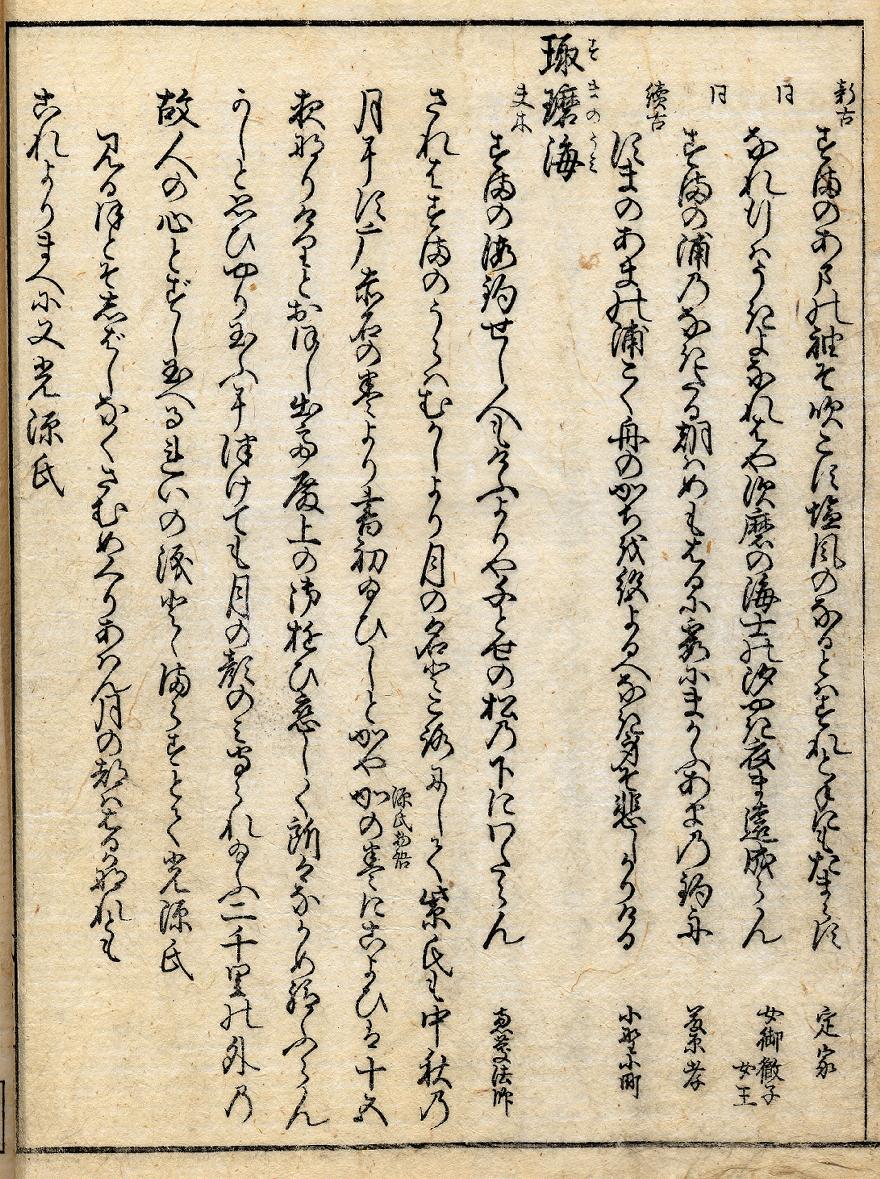 新古 すまのあまの袖に吹こす塩風のなるとはすれと手にもたまらす 定家
同 なれ行はうき世なれはや須磨の海士の汐やき衣ま遠成らん 女御徽子女王
同 すまの浦のなきたる朝はめもはるに霞にまかふあまの釣舟 藤原孝
続古 すまのあまの浦こく舟のかちを絶よるへなき身そ悲しかりける 小野小町
琢磨海 すまのうみ
夫木 すまの海釣せし人もけふよりや千とせの松の下にいたらん 恵慶法師
されはすまのうらはむかしより月の名ところにして紫氏も中秋の
月に須广赤石の巻より書初給ひしとかや 源氏物語 かの巻にこよひは十五
夜なりけりとおほし出て殿上の御遊ひ恋しく所々なかめ給ふらん
かしと思ひやり玉ふに津けても月の顔のみまもられ給ふ二千里の外の
故人の心とずし玉へるれいの涙もとゝまらすとて光源氏
見る程そしばしなくさむめくりあはん月の都ははるかなれとも
これよりまへに又光源氏